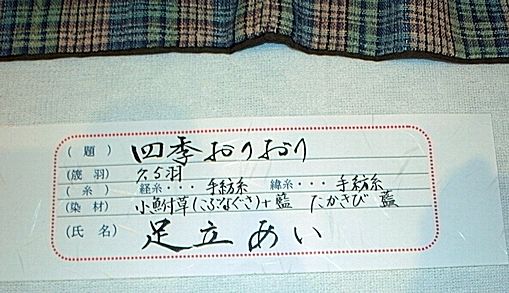 (題) 四季おりおり
(筬羽) 久5羽
(糸) 経糸・・・手紡糸 緯糸・・・手紡糸
(染材) 小鮒草(こぶなぐさ)+藍 たかきび 藍
(氏名) 足立あい